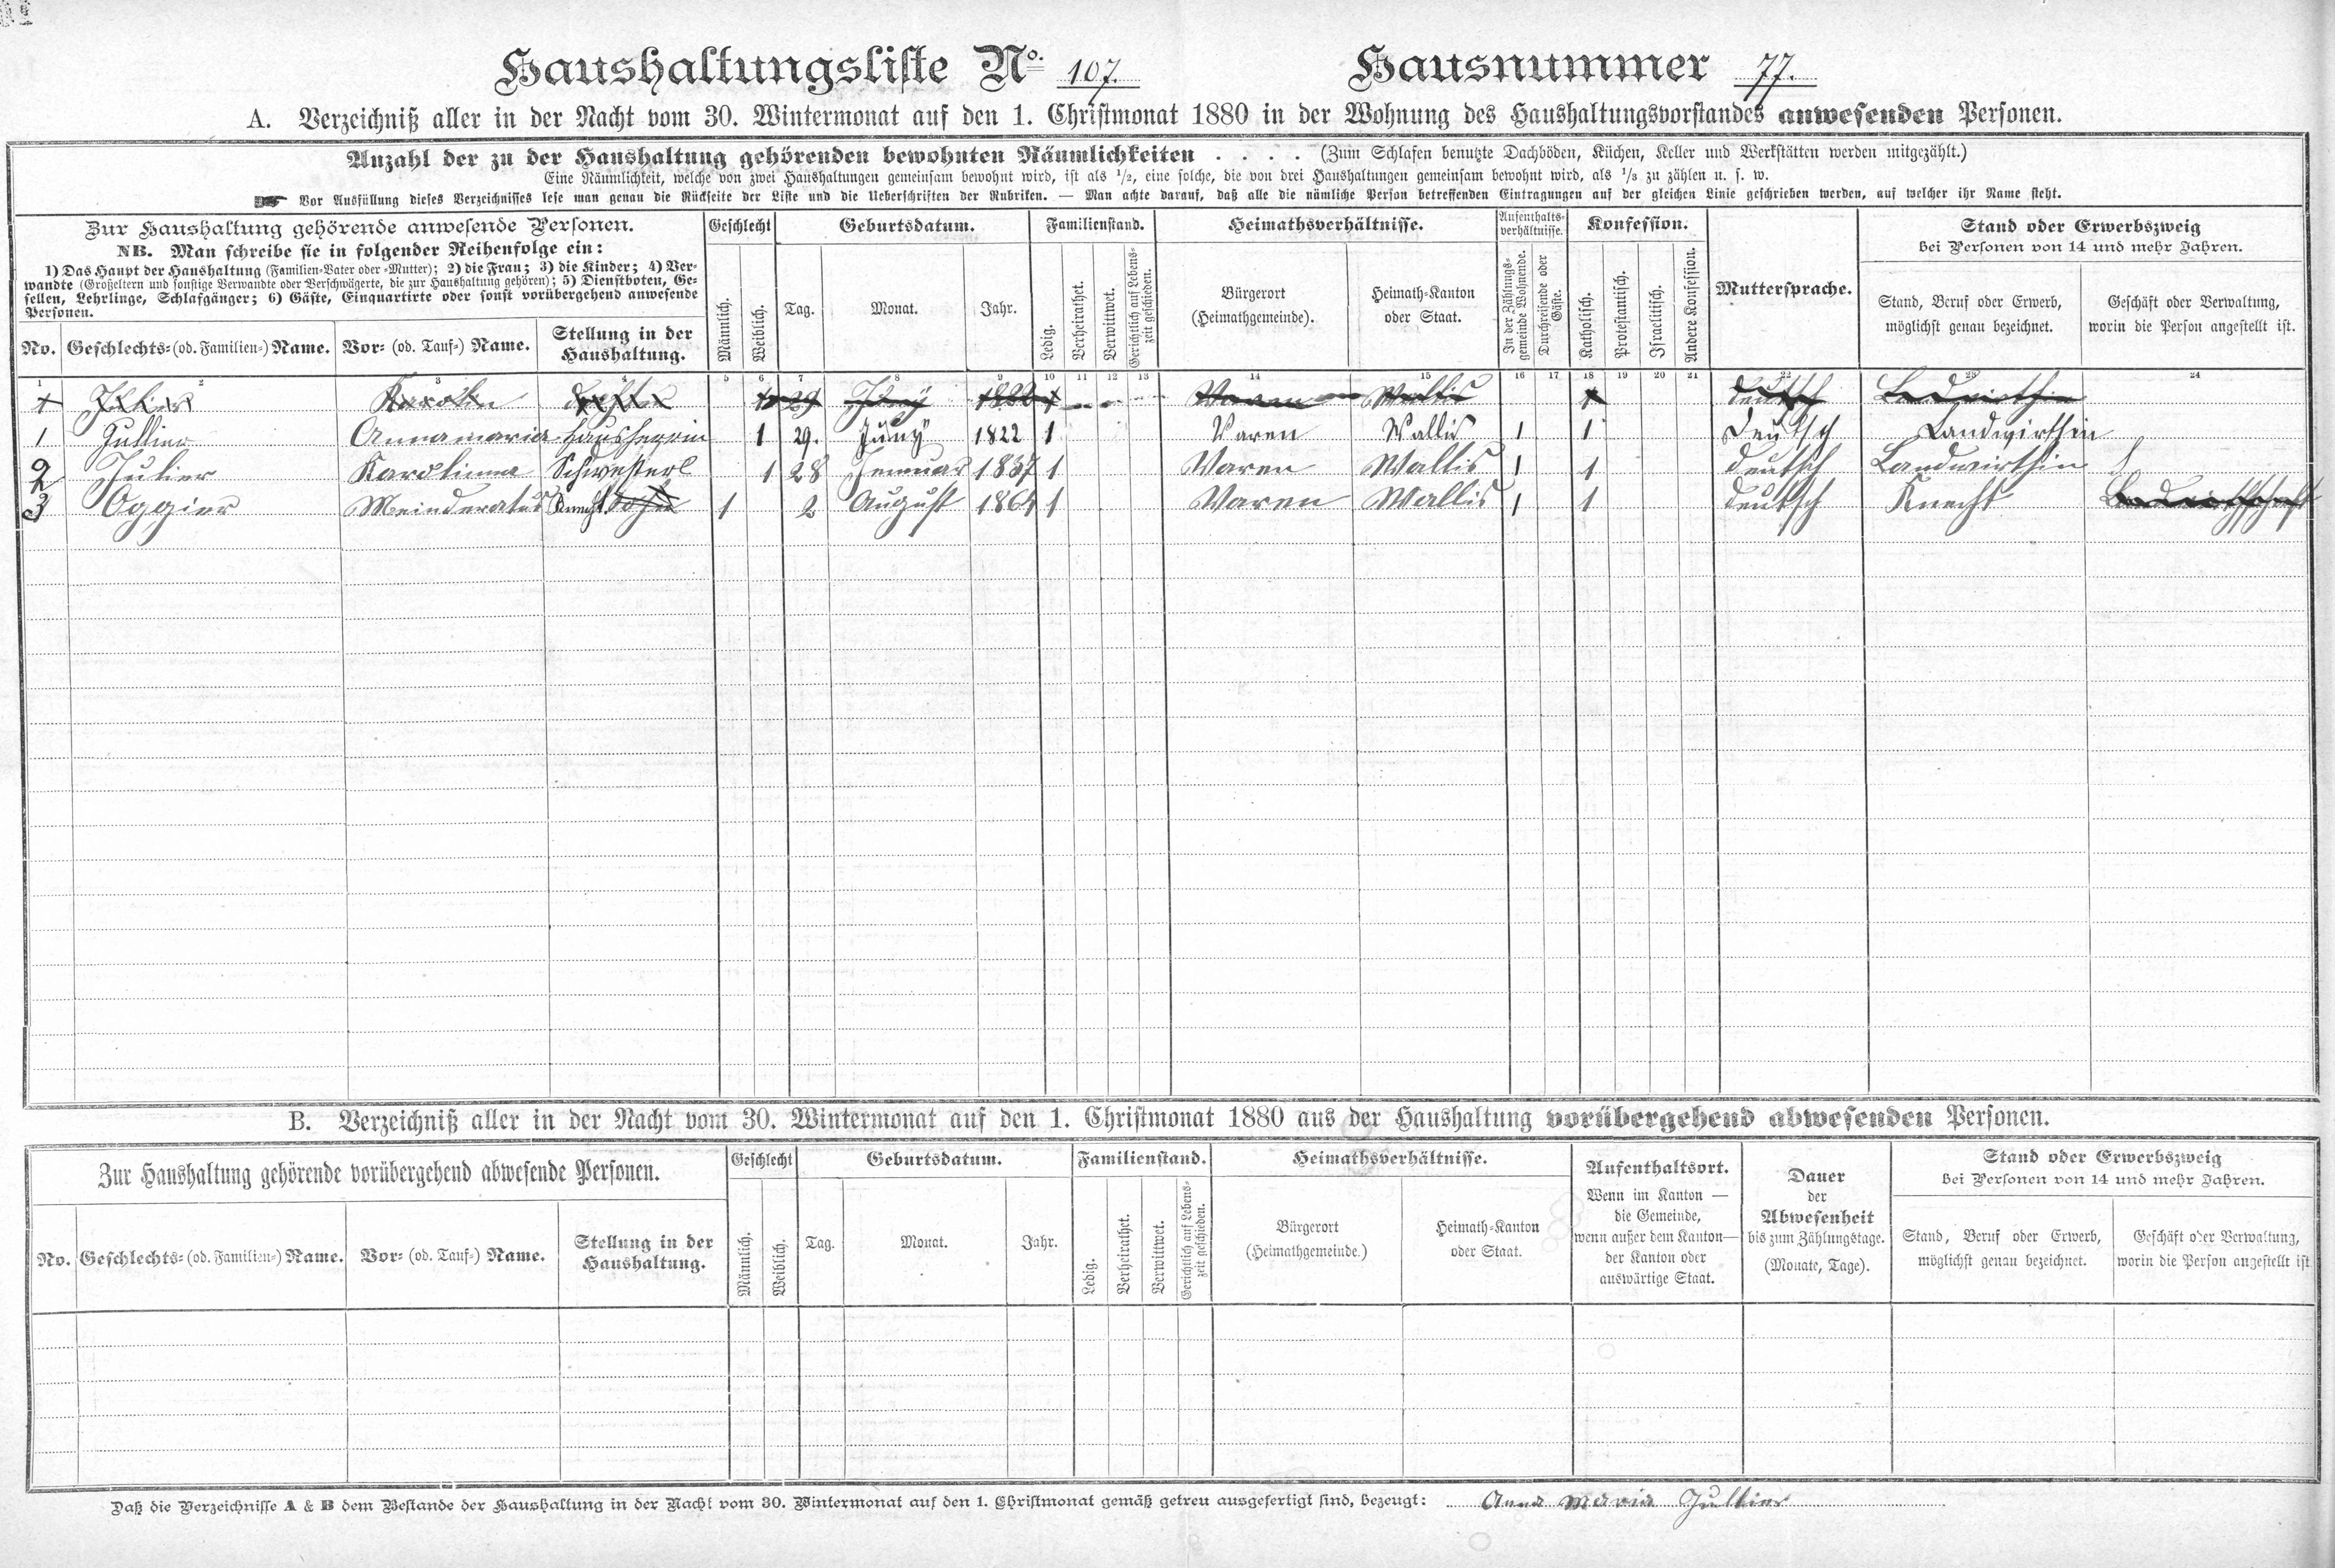 Haushaltungsliste No. 107. Hausnummer 77.
A. Verzeichniß aller in der Nacht vom 30. Wintermonat auf den 1. Christmonat 1880 in der Wohnung des Haushaltungsvorstandes anwesenden Personen.
Anzahl der zu der Haushaltung gehörenden bewohnten Räumlichkeiten . . . . (Zum Schlafen benutzte Dachböden, Küchen, Keller und Werkstätten werden mitgezählt.)
Eine Räumlichkeit, welche von zwei Haushaltungen gemeinsam bewohnt wird, ist als 1/2, eine solche, die von drei Haushaltungen gemeinsam bewohnt wird, als 1/3 zu zählen u. s. w.
Vor Ausfüllung dieses Verzeichnisses lese man genau die Rückseite der Liste und die Ueberschriften der Rubriken. — Man achte darauf, daß alle die nämliche Person betreffenden Eintragungen auf der gleichen Linie geschrieben werden, auf welcher ihr Name steht.
Zur Haushaltung gehörende anwesende Personen.
NB. Man schreibe sie in folgender Reihenfolge ein:
1) Das Haupt der Haushaltung (Familien-Vater oder -Mutter); 2) die Frau; 3) die Kinder; 4) Ver-
wandte (Großeltern und sonstige Verwandte oder Verschwägerte, die zur Haushaltung gehören); 5) Dienstboten, Ge-
sellen, Lehrlinge, Schlafgänger; 6) Gäste, Einquartirte oder sonst vorübergehend anwesende
Personen.
No. Geschlechts- (od. Familien-) Name. Vor- (od. Tauf-) Name. Stellung in der
Haushaltung.
Geschlecht
Männlich.
Weiblich.
Geburtsdatum.
Tag. Monat. Jahr.
Familienstand.
Ledig.
Verheirathet.
Verwittwet.
Gerichtlich auf Lebens-
zeit geschieden.
Heimathsverhältnisse.
Bürgerort
(Heimathgemeinde).
Heimath-Kanton
oder Staat.
Aufenthalts-
verhältnisse.
In der Zählungs-
gemeinde Wohnende.
Durchreisende oder
Gäste.
Konfession.
Katholisch.
Protestantisch.
Israelitisch.
Andere Konfession.
Muttersprache.
Stand oder Erwerbszweig
bei Personen von 14 und mehr Jahren.
Stand, Beruf oder Erwerb,
möglichst genau bezeichnet.
Geschäft oder Verwaltung,
worin die Person angestellt ist.
1 2 3 4 5 6 7 8 9 10 11 12 13 14 15 16 17 18 19 20 21 22 23 24
1 Julier Karolin 1 29 Juny 1822 1 Varen Wallis 1 deutsch Landwirthin
1 Jullier Annamaria Hausherrin 1 29. Juny 1822 1 Varen Wallis 1 1 Deutsch Landwirthin
2 Julier Karolinna Schwesterl 1 28 Jenuar 1837 1 Varen Wallis 1 1 deutsch Landwirthin
3 Oggier Meinderatus Knecht Sohn 1 2 August 1864 1 Varen Wallis 1 1 deutsch Knecht Landwirthschaft
B. Verzeichniß aller in der Nacht vom 30. Wintermonat auf den 1. Christmonat 1880 aus der Haushaltung vorübergehend abwesenden Personen.
Zur Haushaltung gehörende vorübergehend abwesende Personen.
No. Geschlechts- (od. Familien-) Name. Vor- (od. Tauf-) Name. Stellung in der
Haushaltung.
Geschlecht
Männlich.
Weiblich.
Geburtsdatum.
Tag. Monat. Jahr.
Familienstand.
Ledig.
Verheirathet.
Verwittwet.
Gerichtlich auf Lebens-
zeit geschieden.
Heimathsverhältnisse.
Bürgerort
(Heimathgemeinde.)
Heimath-Kanton
oder Staat.
Aufenthaltsort.
Wenn im Kanton —
die Gemeinde,
wenn außer dem Kanton—
der Kanton oder
auswärtige Staat.
Dauer
der
Abwesenheit
bis zum Zählungstage.
(Monate, Tage).
Stand oder Erwerbszweig
bei Personen von 14 und mehr Jahren.
Stand, Beruf oder Erwerb,
möglichst genau bezeichnet.
Geschäft oder Verwaltung,
worin die Person angestellt ist.
Daß die Verzeichnisse A & B dem Bestande der Haushaltung in der Nacht vom 30. Wintermonat auf den 1. Christmonat gemäß getreu ausgefertigt sind, bezeugt: Anna Maria Jullier